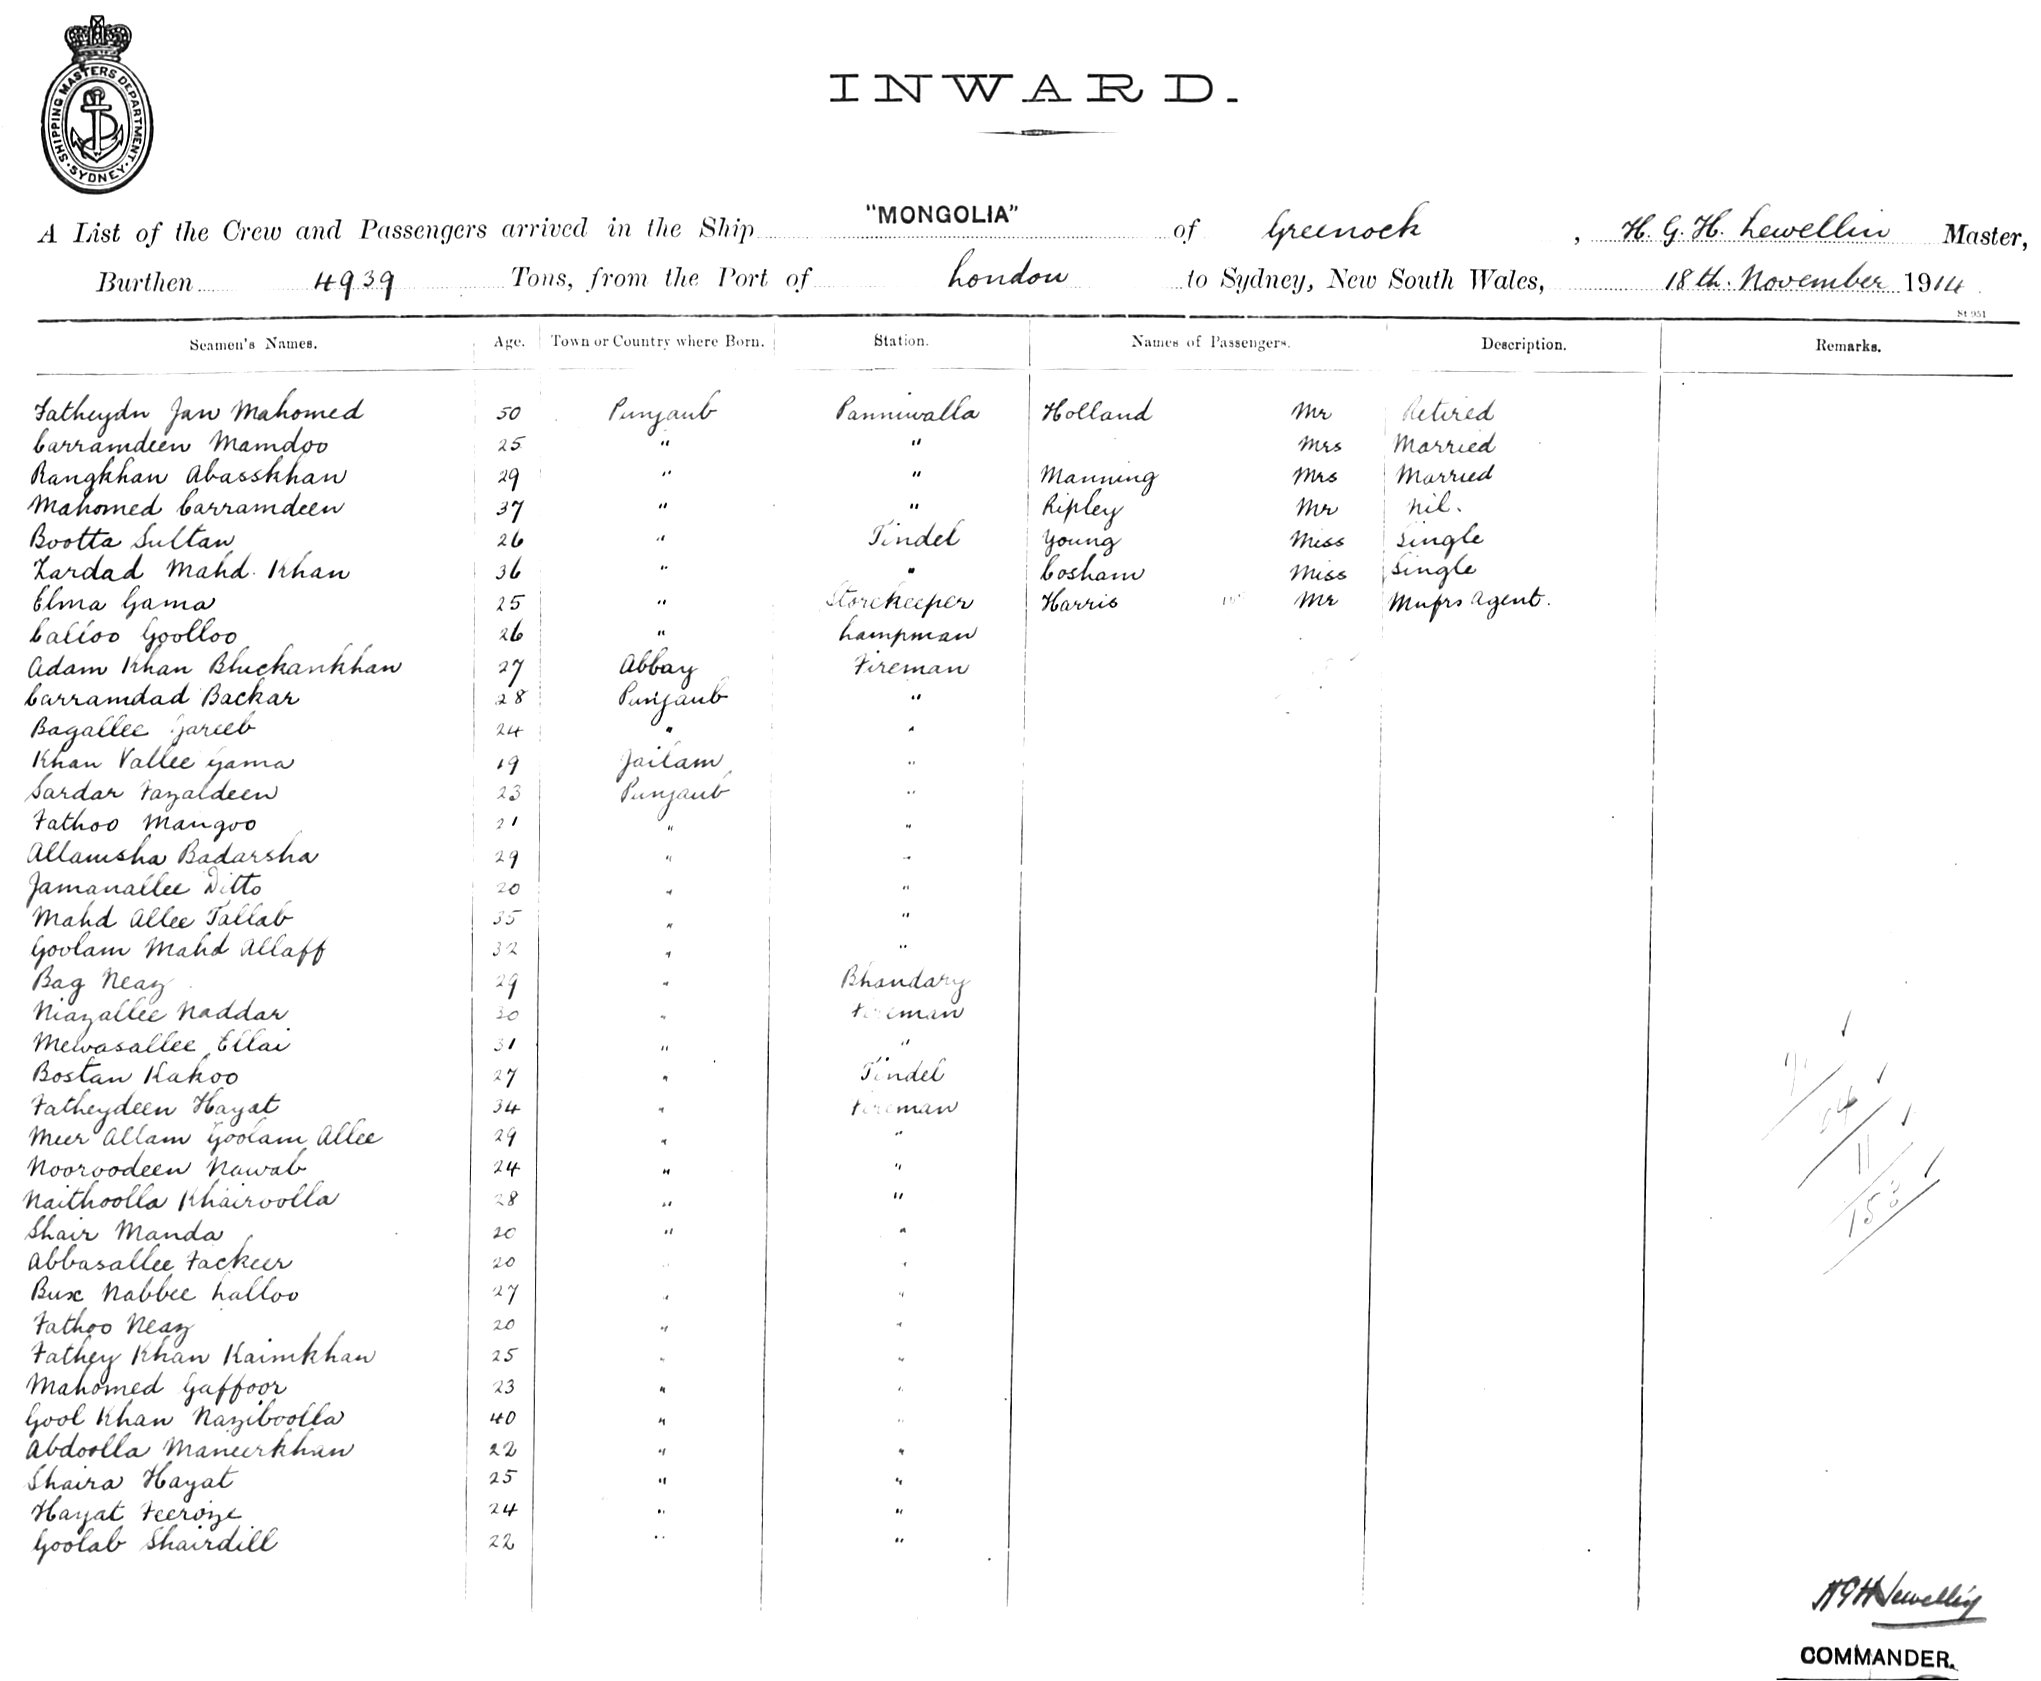 SHIPPING MASTERS DEPARTMENT. SYDNEY.
INWARD.
A List of the Crew and Passengers arrived in the Ship "MONGOLIA" of Greenock, H. G. H. Lewellin Master,
Burthen 4939 Tons, from the Port of London to Sydney, New South Wales, 18th. November 1914
St 951
Seamen's Names. Age. Town or Country where Born. Station. Names of Passengers. Description. Remarks.
Fatheydn Jan Mahomed 50 Punjaub Panniwalla Holland Mr Retired
Carramdeen Mamdoo 25 " " Mrs Married
Rangkhan Abasskhan 29 " " Manning Mrs Married
Mahomed Carramdeen 37 " " Ripley Mr Nil.
Bootta Sultan 26 " Tindel Young Miss Single
Zardad Mahd. Khan 36 " " Cosham Miss Single
Elma Gama 25 " Storekeeper Harris Mr Mnfrs Agent.
Calloo Goolloo 26 " Lampman
Adam Khan Bhickankhan 27 Abbay Fireman
Carramdad Backar 28 Punjaub "
Bagallee Gareeb 24 " "
Khan Vallee Gama 19 Jailam "
Sardar Fazaldeen 23 Punjaub "
Fathoo Mangoo 21 " "
Allamsha Badarsha 29 " "
Jamanallee Ditto 20 " "
Mahd Allee Tallab 35 " "
Goolam Mahd Allaff 32 " "
Bag Neaz 29 " Bhandary
Niazallee Naddar 30 " Fireman
Mewasallee Ellai 31 " "
Bostan Kakoo 27 " Tindel
Fatheydeen Hayat 34 " Fireman
Meer Allam Goolam Allee 29 " "
Nooroodeen Nawab 24 " "
Naithoolla Khairoolla 28 " "
Shair Manda 20 " "
Abbasallee Fackeer 20 " "
Bux Nabbee Lalloo 27 " "
Fathoo Neaz 20 " "
Fathey Khan Kaimkhan 25 " "
Mahomed Gaffoor 23 " "
Gool Khan Naziboolla 40 " "
Abdoolla Maneerkhan 22 " "
Shaira Hayat 25 " "
Hayat Feeroze 24 " "
Goolab Shairdill 22 " "
64
11
153
HGH Lewellin
COMMANDER.